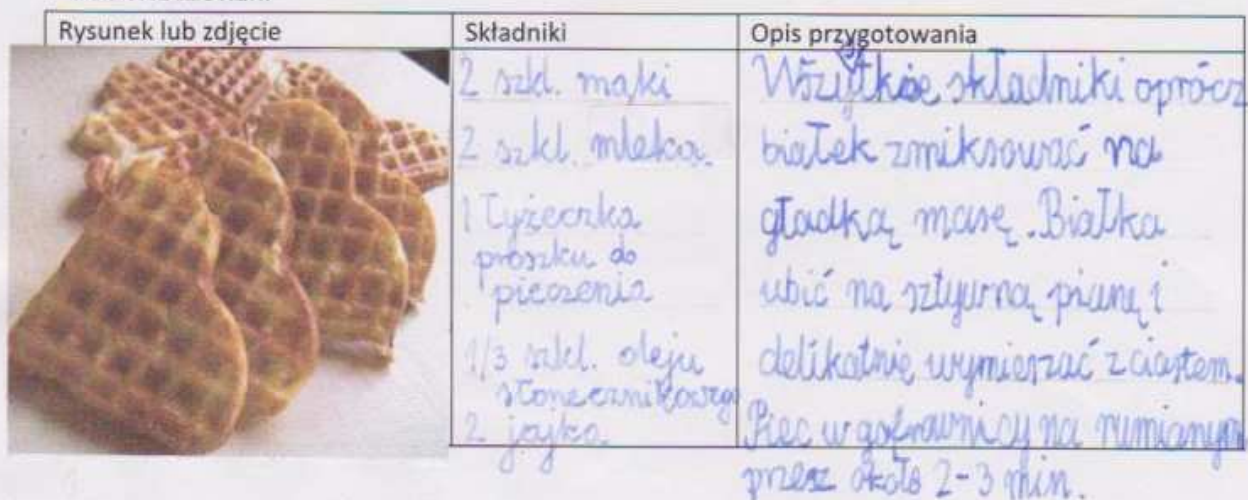 Rysunek lub zdjęcie
Składniki
Opis przygotowania
2 szkl. mąki
2 szkl. mleka.
1 łyżeczka
proszku do
pieczenia
1/3 szkl. oleju
słonecznikowego
2 jajka
Wszystkie składniki oprócz
białek zmiksować na
gładką masę. Białka
ubić na sztywną pianę i
delikatnie wymieszać z ciastem.
Piec w gofrownicy na rumiany
przez około 2-3 min.